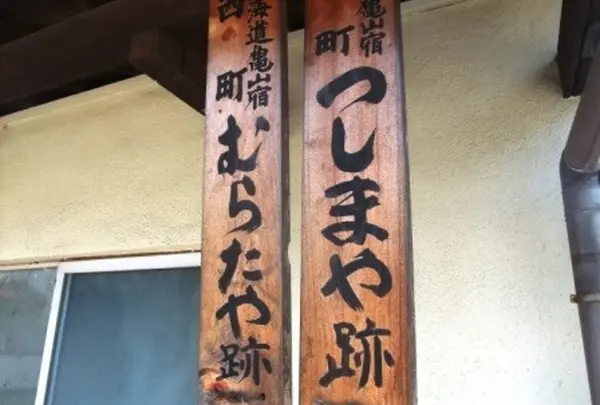 亀山宿
町
つしまや跡
海道亀山宿
西町
むらたや跡